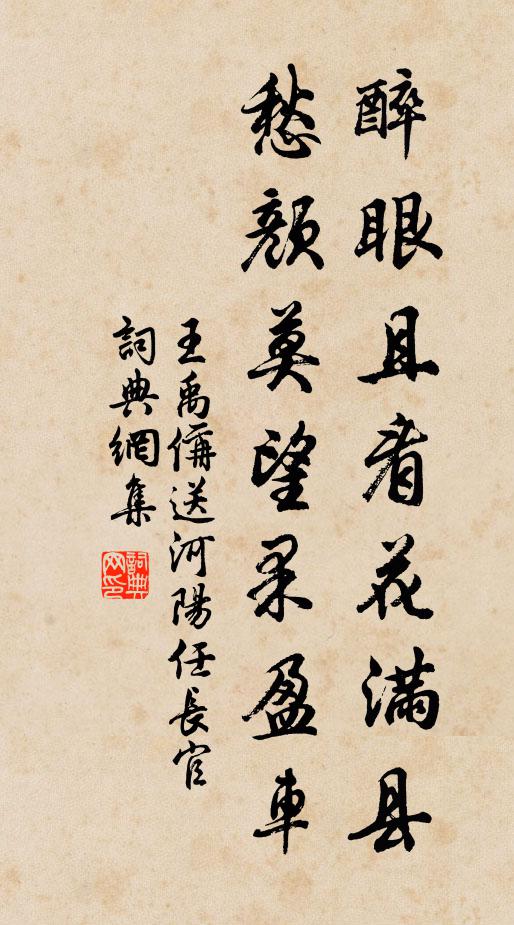 醉眼且看花满县
愁颜莫望果盈车
王禹偁送河陽任長官
詞典網集
詞典网印